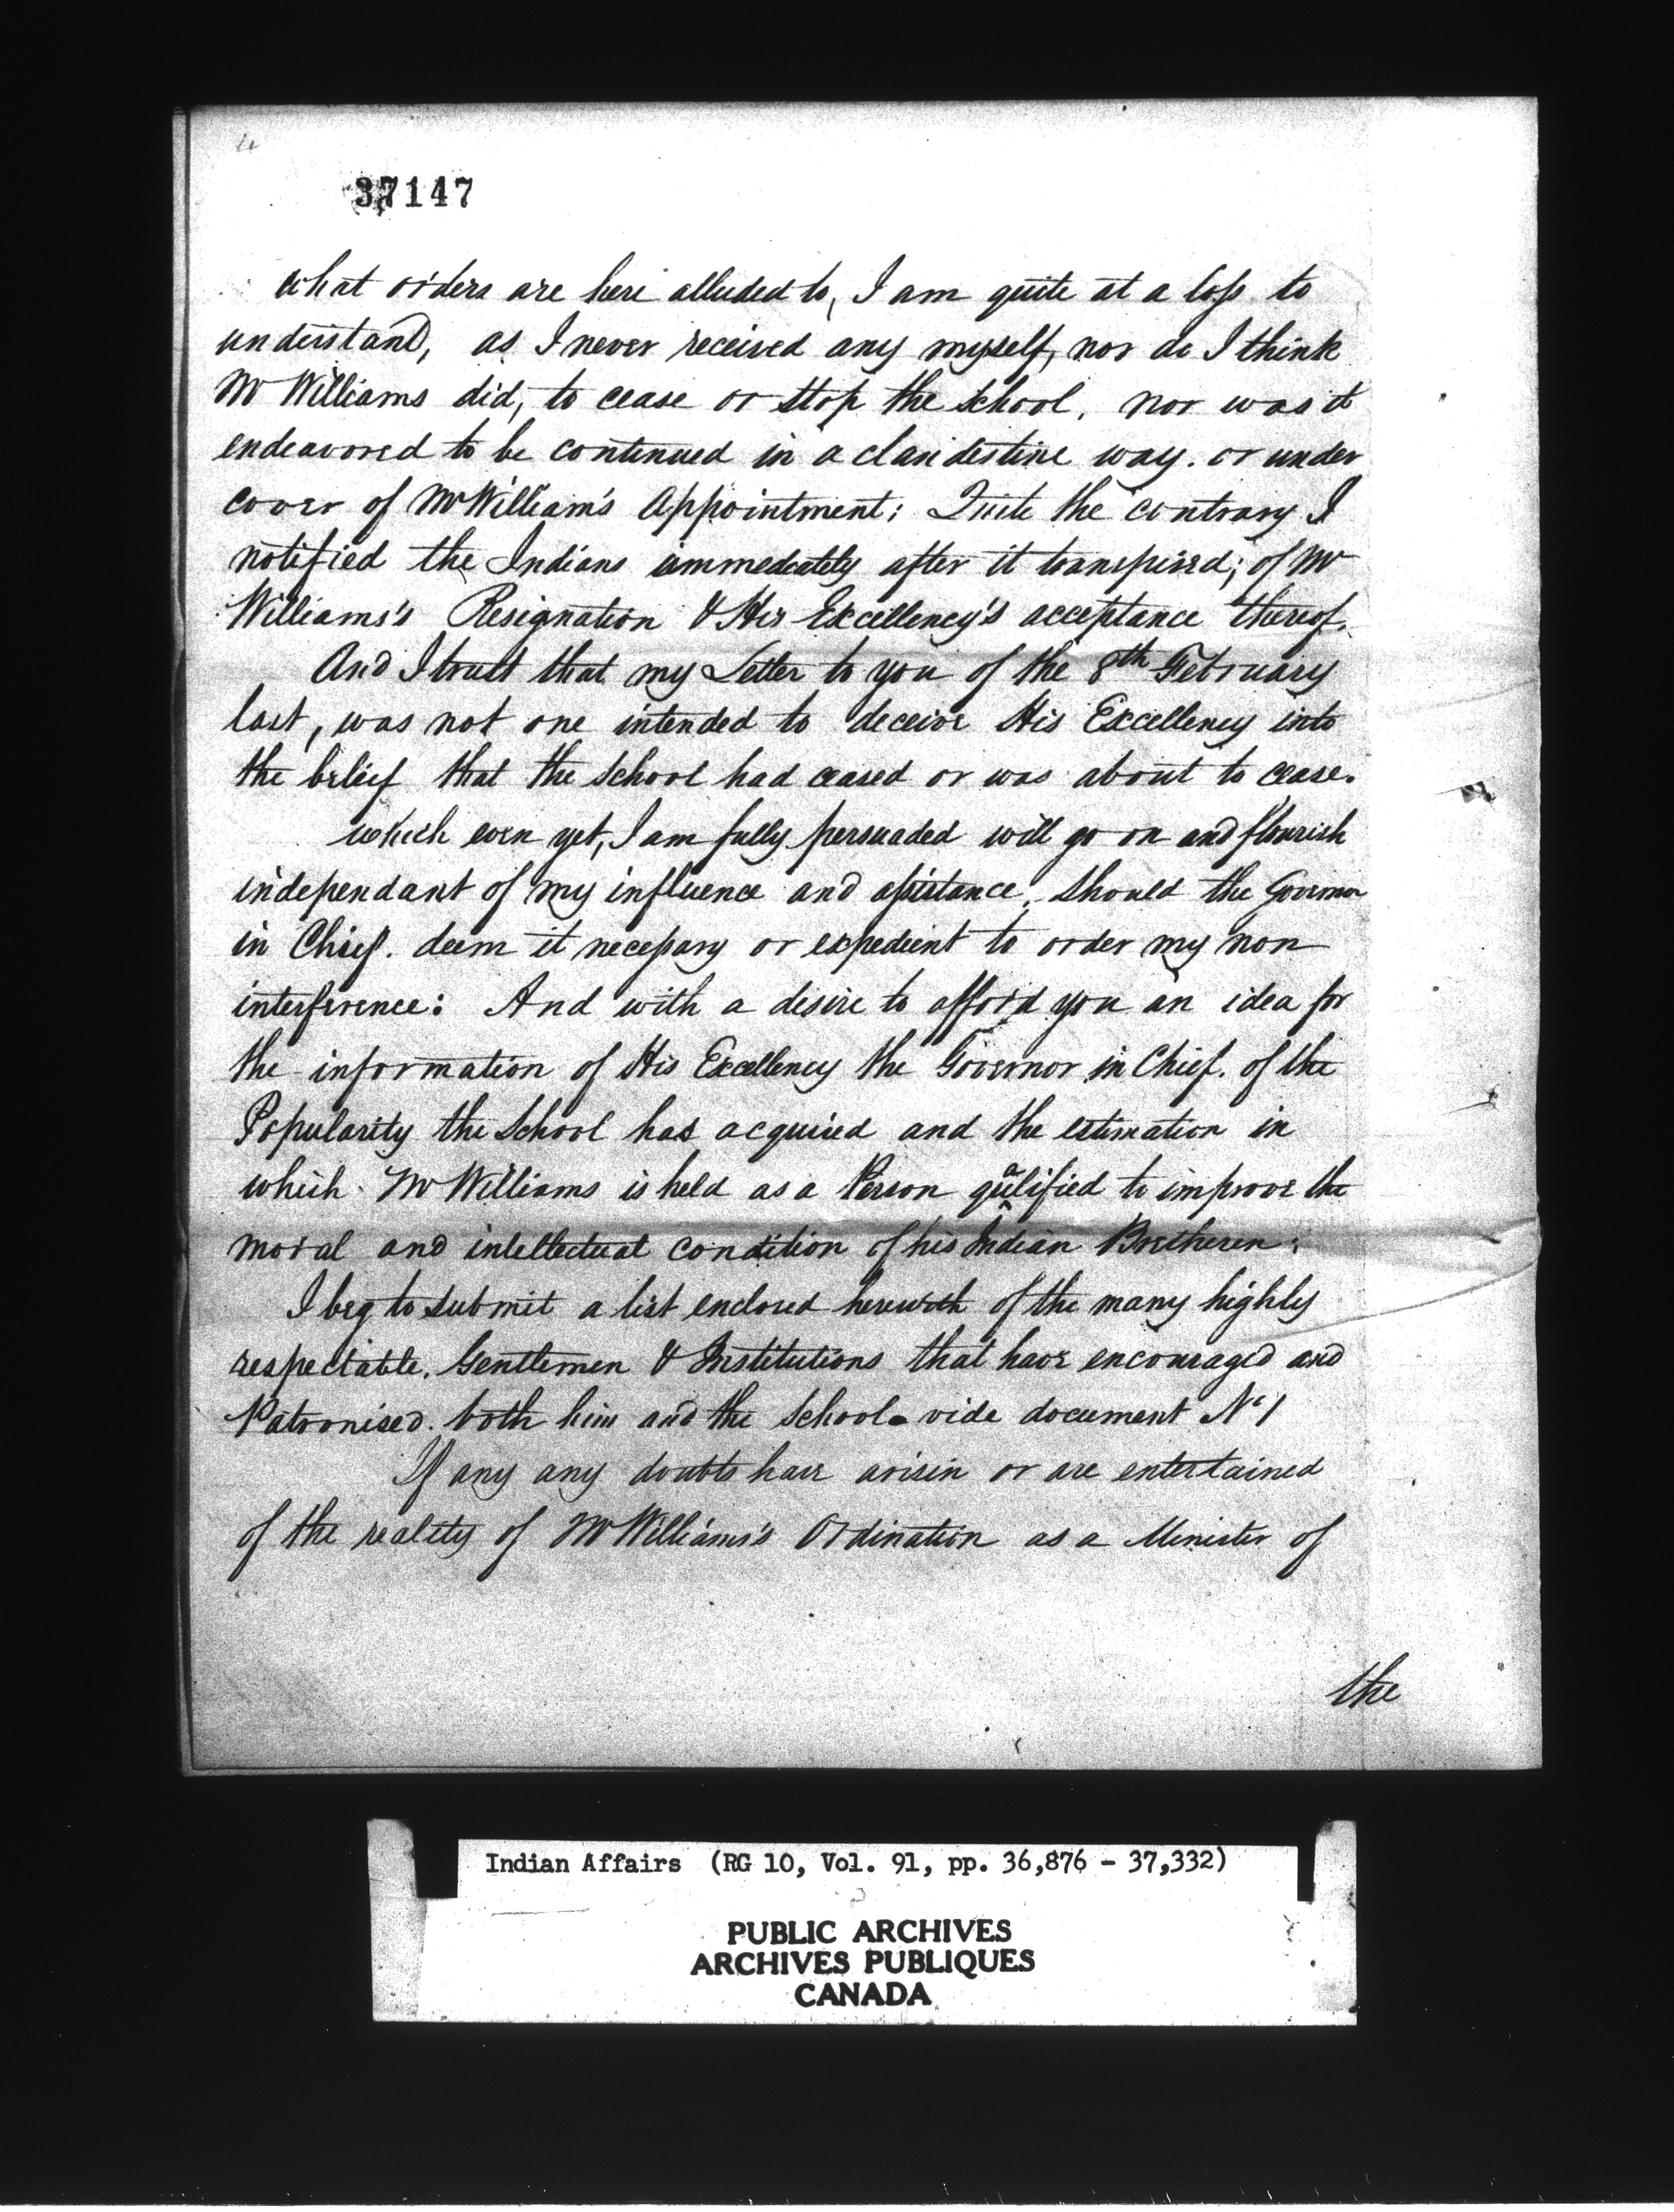 37147
what orders are here alluded to, I am quite at a loss to
understand, as I never received any myself, nor do I think
Mr Williams did, to cease or stop the School. nor was it
endeavored to be continued in a clandestine way. or under
cover of Mr William's Appointment; Quite the contrary I
notified the Indians immediately after it transpired; of Mr
Williams's Resignation & His Excellency's acceptance thereof.
And I trust that my Letter to you of the 8th February
last, was not one intended to deceive His Excellency into
the belief that the School had ceased or was about to cease.
which even yet, I am fully persuaded will go on and flourish
independant of my influence and assistance, should the Governor
in Chief. deem it necessary or expedient to order my non
interference: And with a desire to afford you an idea for
the information of His Excellency the Governor in Chief. of the
Popularity the School has acquired and the estimation in
which Mr Williams is held as a Person qualified to improve the
moral and intellectual condition of his Indian Bretheren:
I beg to submit a list enclosed herewith of the many highly
respectable. Gentlemen & Institutions that have encouraged and
Patronised. both him and the School. vide document No 1
If any any doubts have arisin or are entertained
of the reality of Mr Williams's Ordination as a Minister of
the
Indian Affairs (RG 10, Vol. 91, pp. 36,876 - 37,332)
PUBLIC ARCHIVES
ARCHIVES PUBLIQUES
CANADA